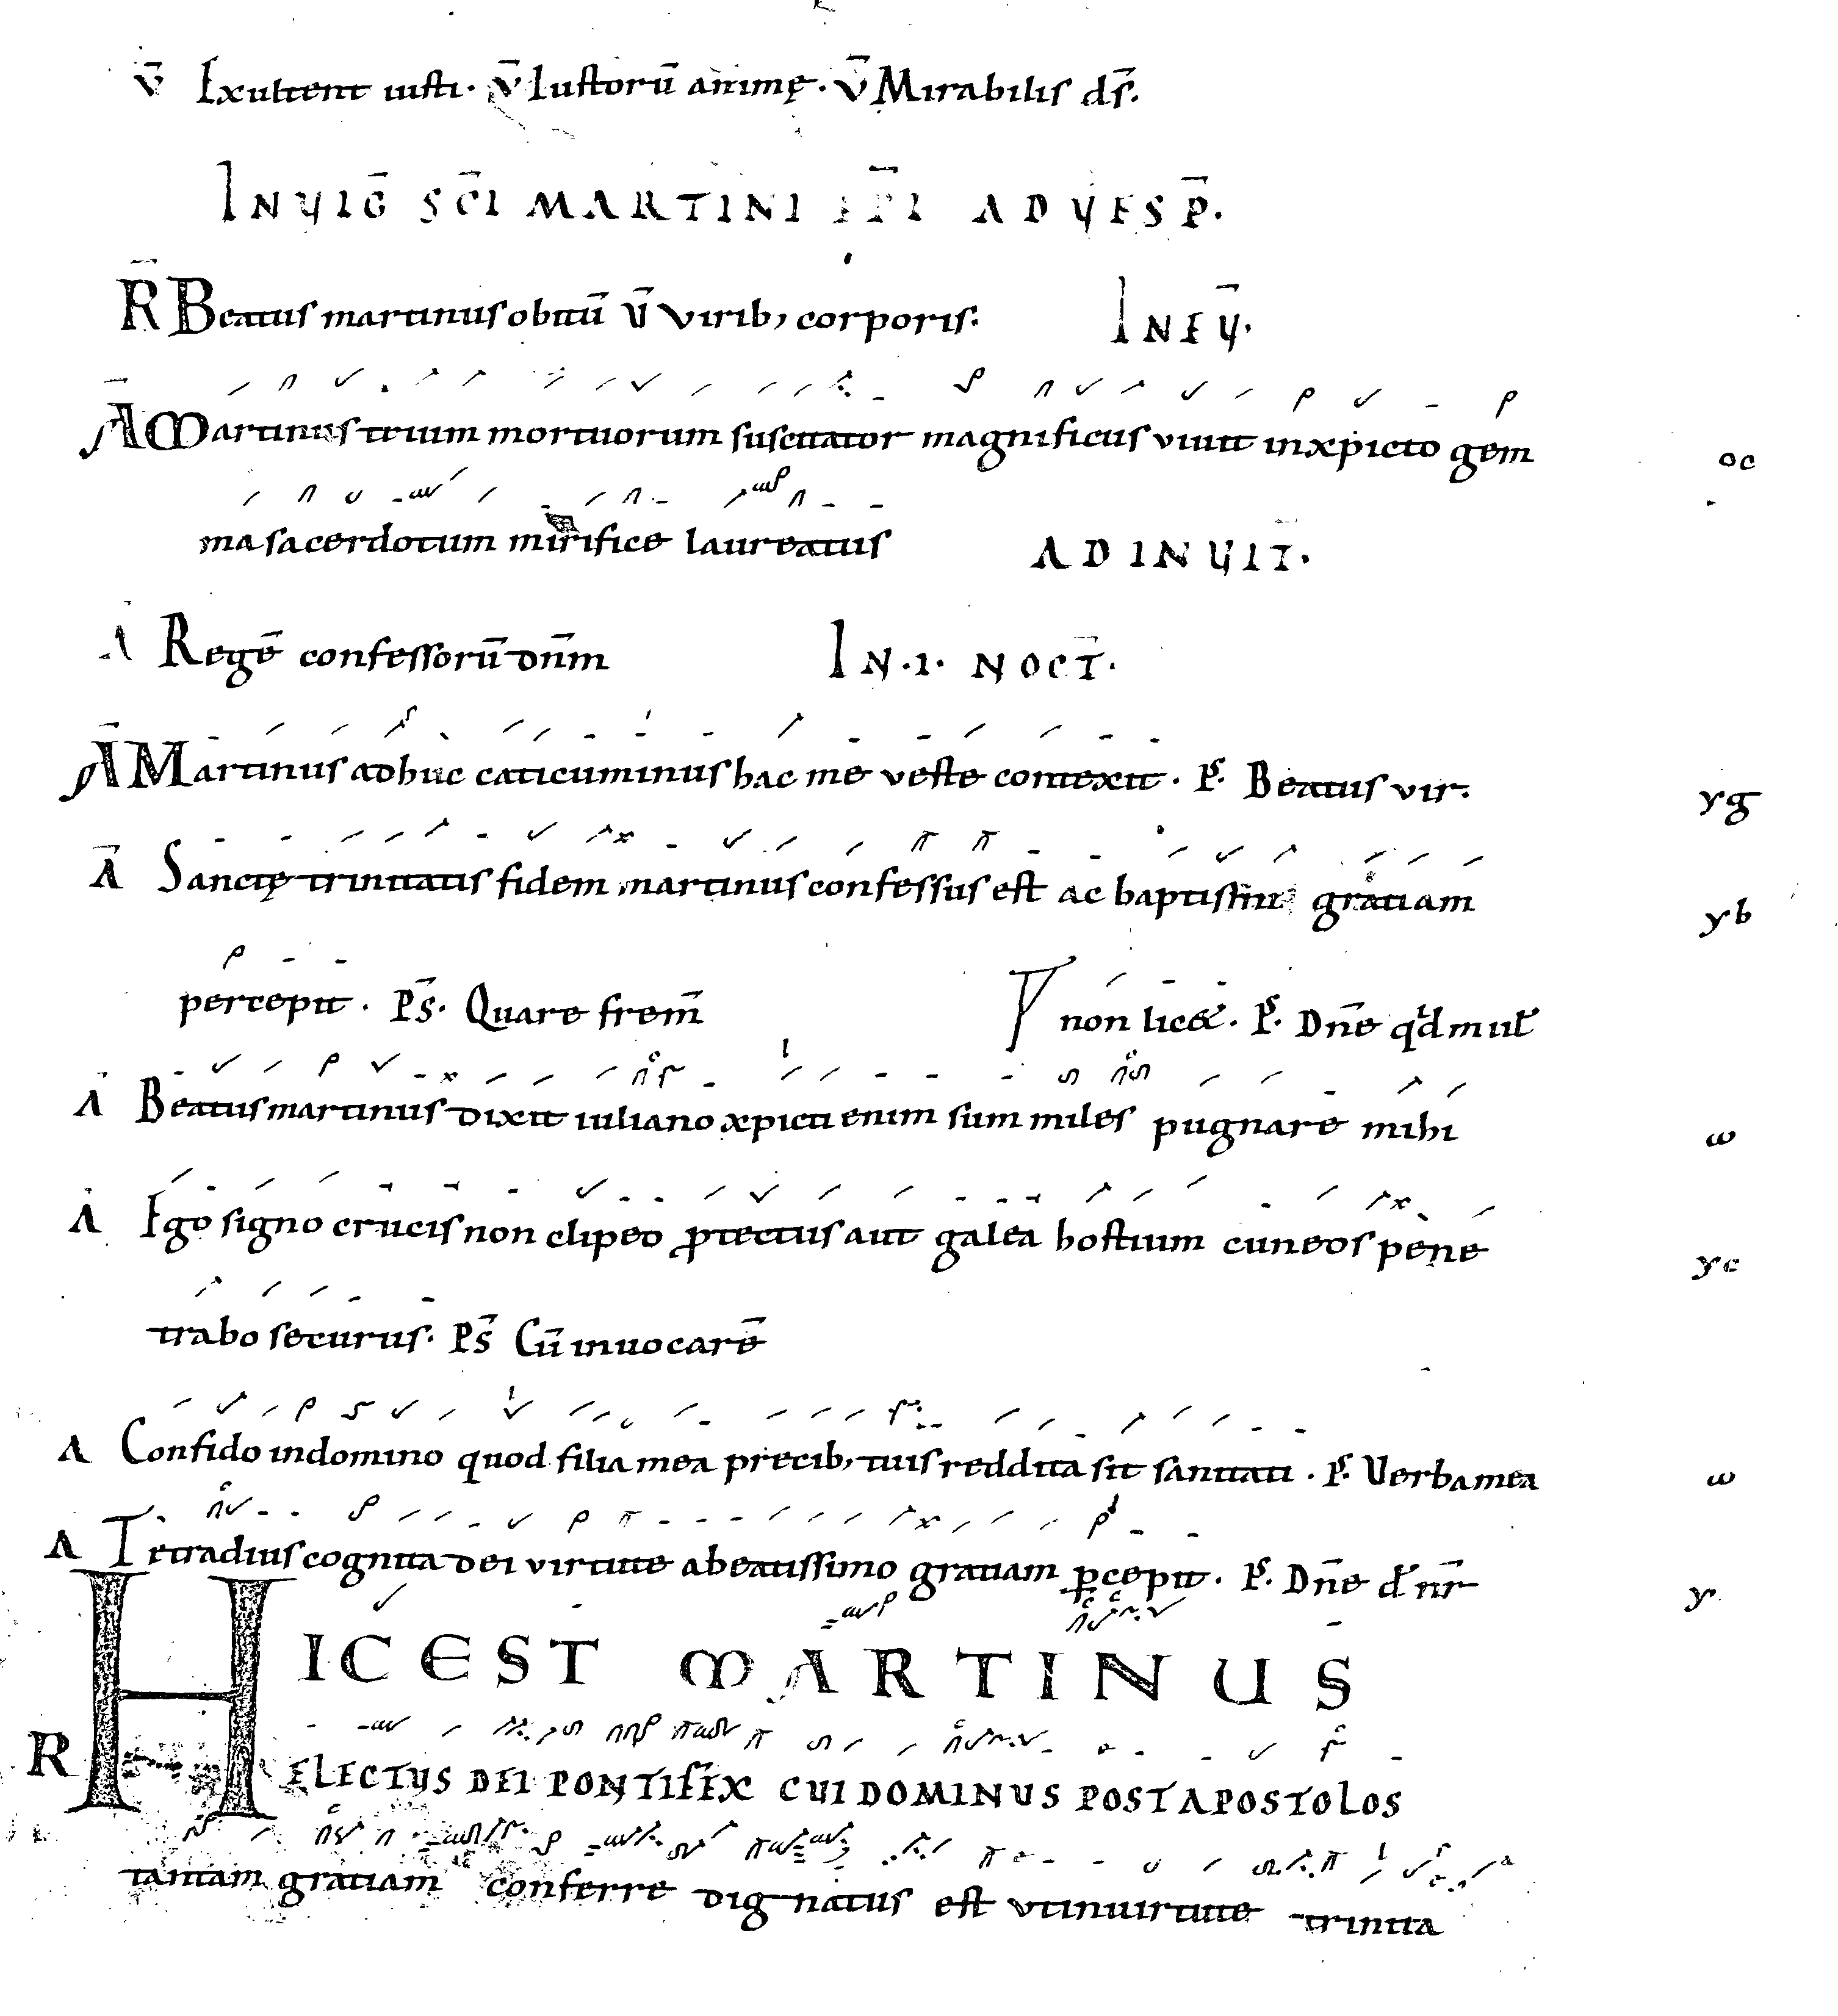 V̄ Exultent iusti. V̄ Iustorū animę. V̄ Mirabilis ds̄.
IN VIG̅ SC̅I MARTINI EP̅I AD VESP̅.
R̄ Beatus martinus obitū V̄ Virib; corporis. IN EV̅.
Ā Martinus trium mortuorum suscitator magnificus viuit in xpicto gem oc
ma sacerdotum mirifice laureatus AD INVIT̅.
Ā Regē confessorū dn̄m IN .I. NOCT̅.
Ā Martinus adhuc caticuminus hac me veste contexit. Ps̄. Beatus vir. yg
Ā Sanctę trinitatis fidem martinus confessus est ac baptismi gratiam yb
percepit. Ps̄. Quare frem̄ non licet. Ps̄. Dn̄e qd mult̄
A Beatus martinus dixit iuliano xpicti enim sum miles pugnare mihi ω
A Ego signo crucis non clipeo ꝓtectus aut galea hostium cuneos pene yc
trabo securus. Ps̄ Cū inuocarē
A Confido in domino quod filia mea precib; tuis reddita sit sanitati. Ps̄. Verba mea ω
A Tetradius cognita dei virtute a beatissimo gratiam ꝑcepit. Ps̄. Dn̄e ds̄ nr̄ y
R HIC EST MARTINUS
ELECTVS DEI PONTIFEX CVI DOMINUS POST APOSTOLOS
tantam gratiam conferre dignatus est vt in uirtute trinita